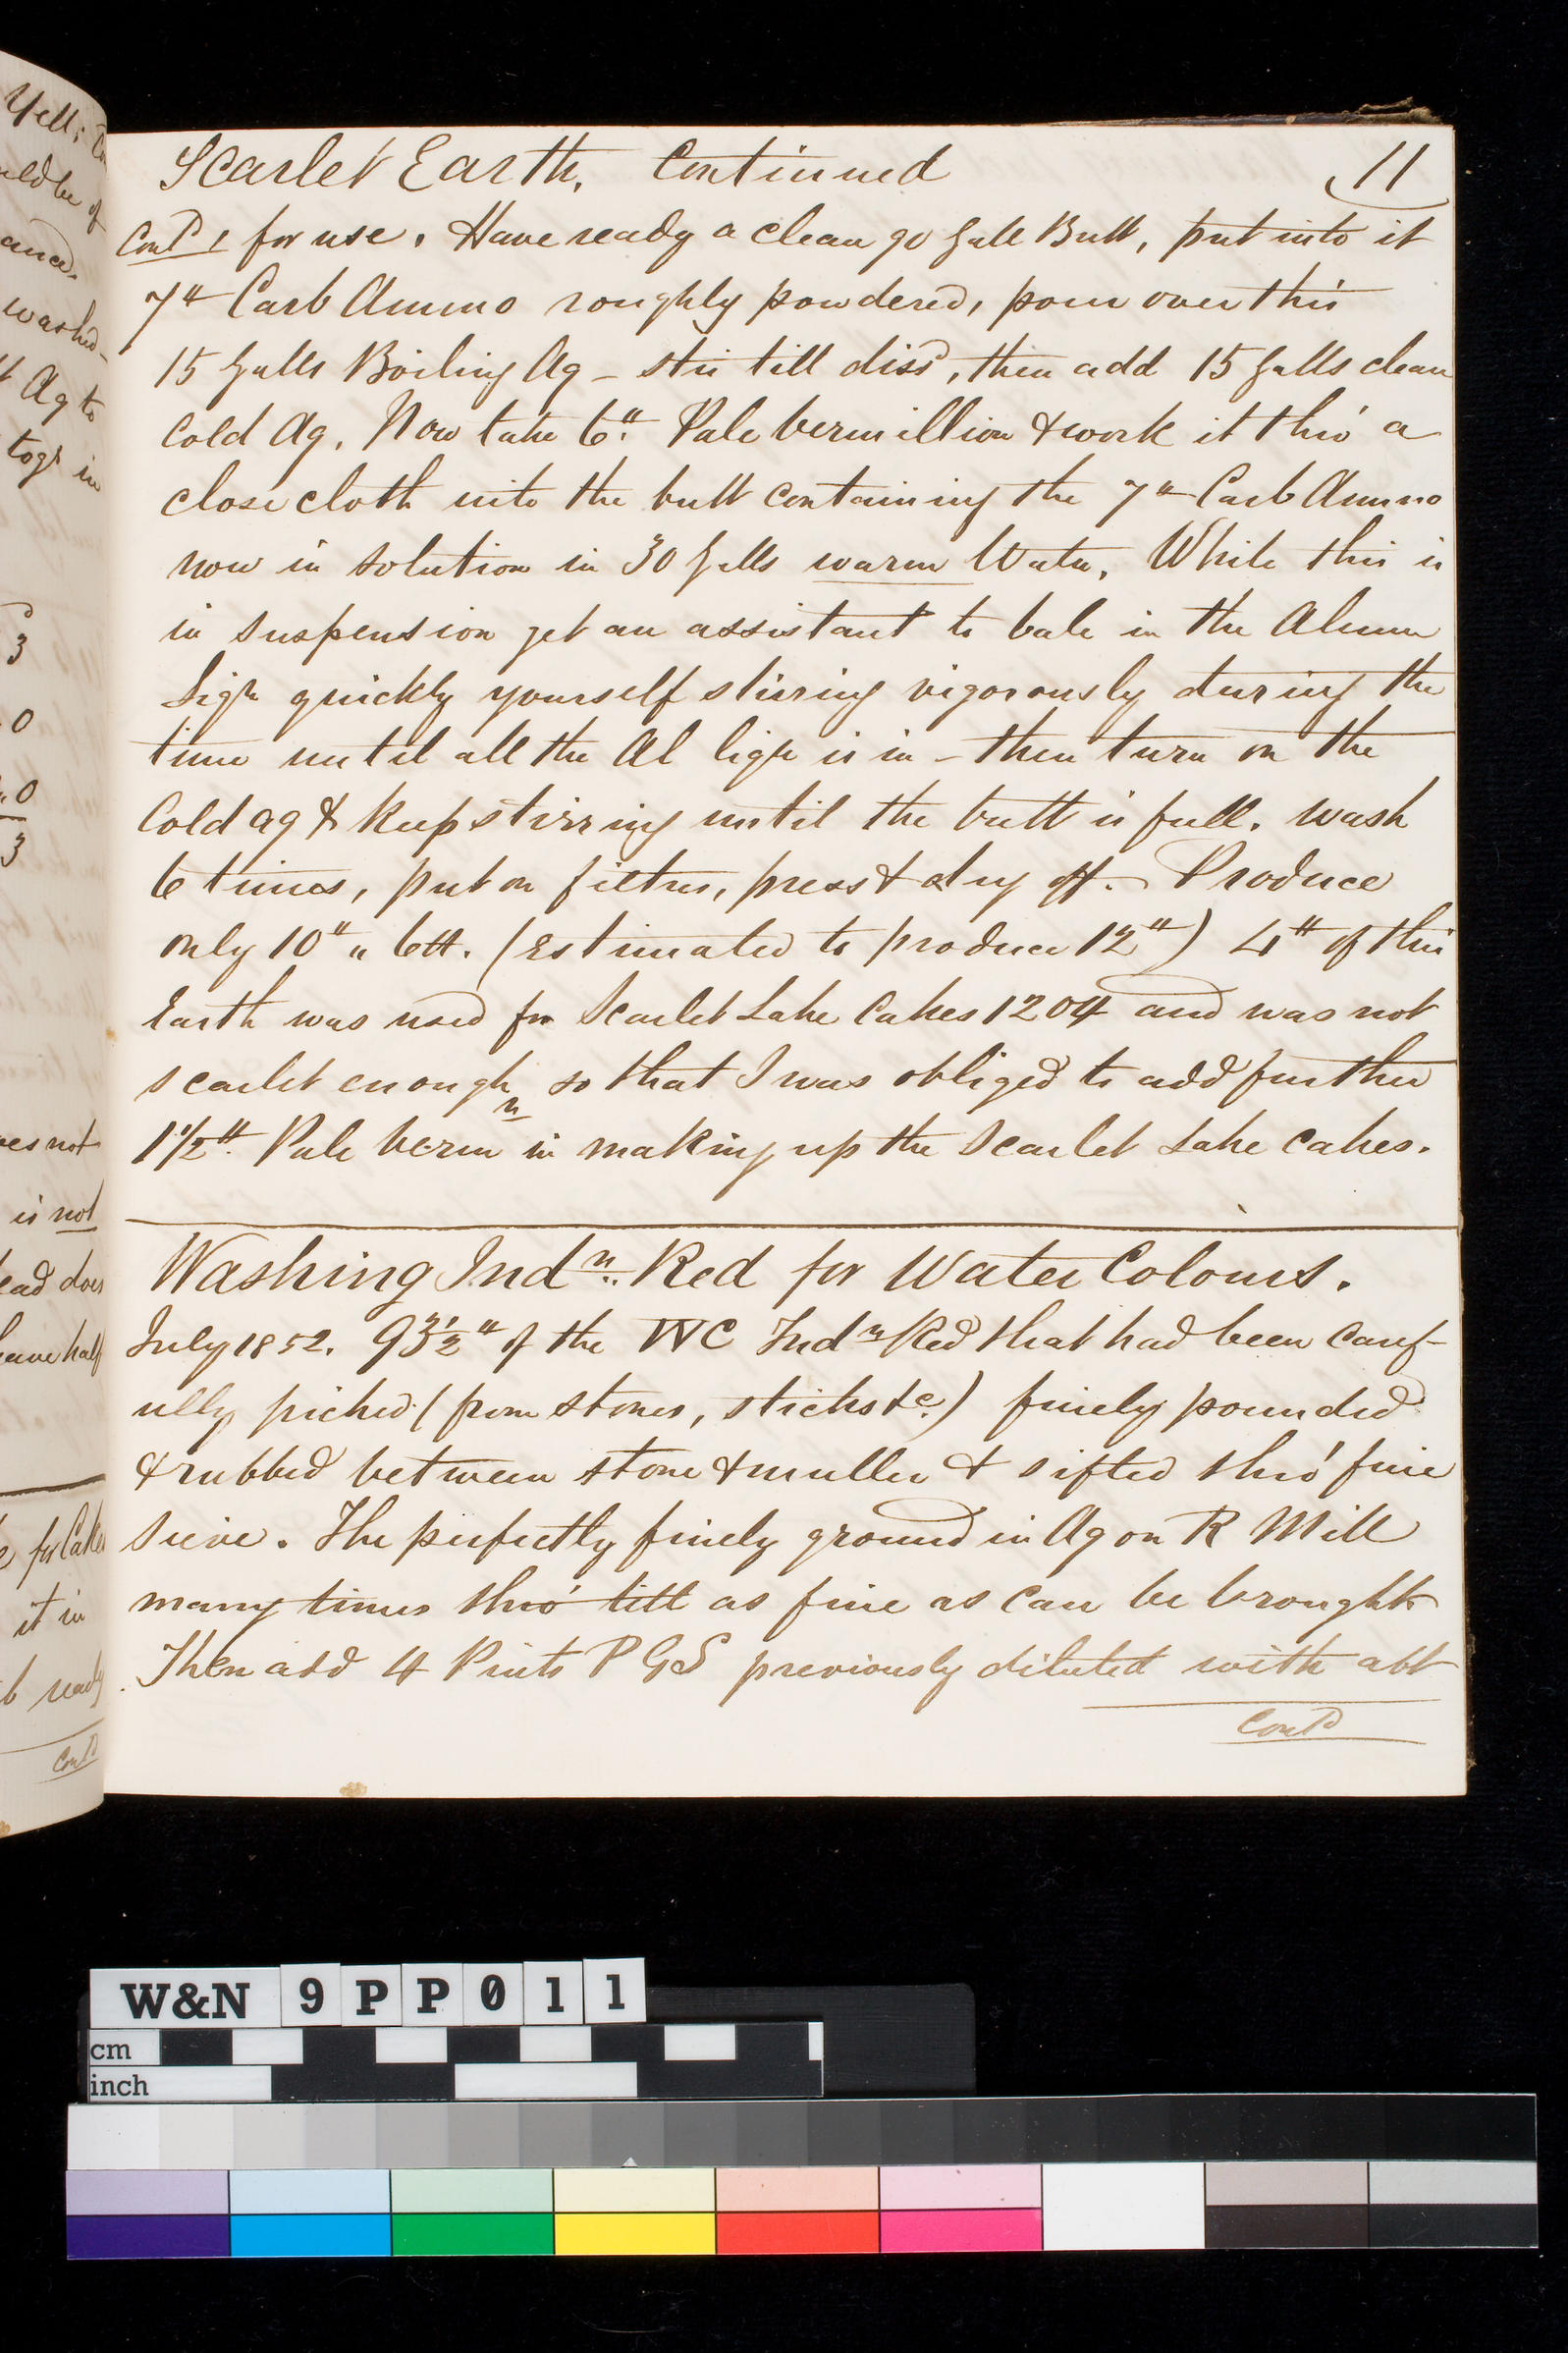 Scarlet Earth. Continued 11
Contd for use. Have ready a clean 90 Gall Butt, put into it
7 lb Carb Ammo roughly powdered, pour over this
15 Galls Boiling Aq – stir till dissd, then add 15 Galls clean
cold Aq. Now take 6 lb Pale Vermillion & work it thro' a
close cloth into the butt containing the 7 lb Carb Ammo
now in solution in 30 Galls warm Water. While this is
in suspension get an assistant to bale in the Alumn
Liqr quickly yourself stirring vigorously during the
time until all the Al liqr is in – then turn on the
Cold aq & keep stirring until the butt is full. Wash
6 times, put on filtres, press & dry off. Produce
only 10 lb " 6 (Estimated to produce 12 lb) 4 lb of this
Earth was used for Scarlet Lake Cakes 1204 and was not
scarlet enough so that I was obliged to add further
1 1/2 lb Pale Vermn in making up the Scarlet Lake Cakes.
Washing Indn. Red for Water Colours.
July 1852. 93 1/2 lb of the WC Indn Red that had been caref-
ully picked (from stones, sticks &c.) finely pounded
& rubbed between stone & muller & sifted thro' fine
Sieve. The perfectly finely ground in Aq on R Mill
many times thro' till as fine as can be brought
Then add 4 Pints P G S previously diluted with abt
Contd
Yell:
ance.
washed
Aq to
togr in
3
0
0
3
not
is not
does
half
for Cakes
it in
ready
Contd
W&N 9PP011
cm
inch